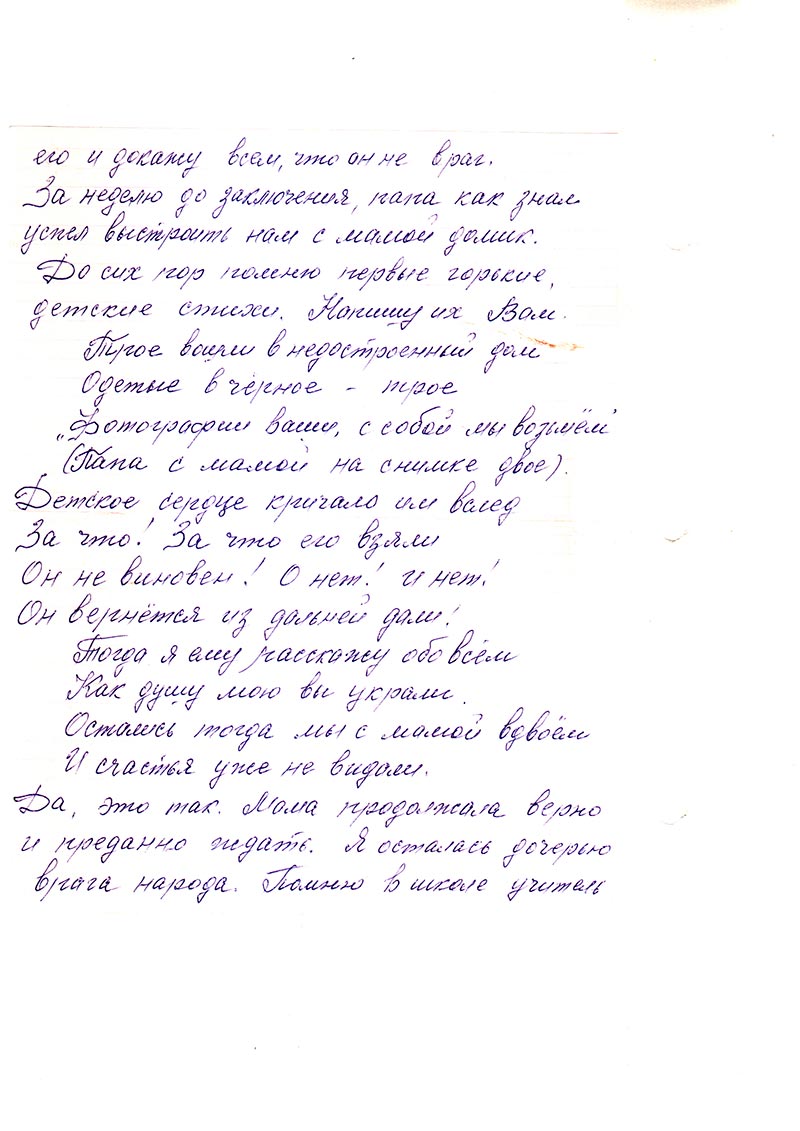 его и докажу всем, что он не враг.
За неделю до заключения, папа как знал
успел выстроить нам с мамой домик.
До сих пор помню первые горькие,
детские стихи. Напишу их Вам.
Трое вошли в недостроенный дом
Одетые в чёрное - трое
„Фотографии ваши, с собой мы возьмём"
(Папа с мамой на снимке двое).
Детское сердце кричало им вслед
За что! За что его взяли
Он не виновен! О нет! и нет!
Он вернётся из дальней дали!
Тогда я ему расскажу обо всём
Как душу мою вы украли.
Остались тогда мы с мамой вдвоём
И счастья уже не видали.
Да, это так. Мама продолжала верно
и преданно ждать. Я осталась дочерью
врага народа. Помню в школе учитель